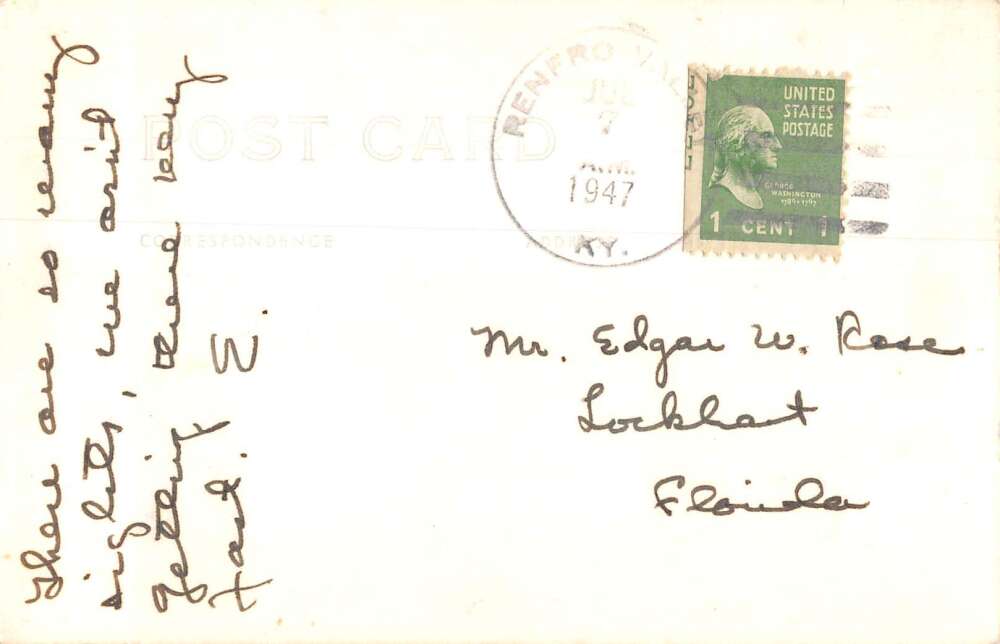 There are so many
sights, we ain't
getting there very
fast. E.
POST CARD
CORRESPONDENCE
ADDRESS
RENFRO VALLEY
JUL
7
A.M.
1947
KY.
UNITED
STATES
POSTAGE
GEORGE
WASHINGTON
1789-1797
1 CENT 1
Mr. Edgar W. Rose
Lockhart
Florida